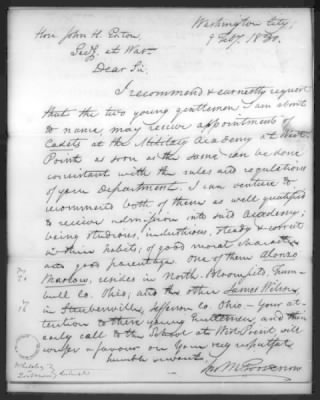 Washington City,
9 Feby. 1830.
Hon. John H. Eaton
Secy. at War.
Dear Sir.
I recommend & earnestly request
that the two young gentlemen I am about
to name, may receive appointments of
Cadets at the Military Academy at West
Point as soon as the same can be done
consistent with the rules and regulations
of your Department. I can venture to
recommend both of them as well qualified
to receive admission into said Academy;
being studious, industrious, steady & correct
in their habits; of good moral character
and good parentage. One of them Alonzo
resides in North Bloomfield, Trum-
bull Co. Ohio; and the other James Wilson,
in Steubenville, Jefferson Co. Ohio - Your at-
tention to these young gentlemen and their
early call to the School at West Point will
confer a favour on Your very respectful
humble servant.
Jno. M. Goodenow